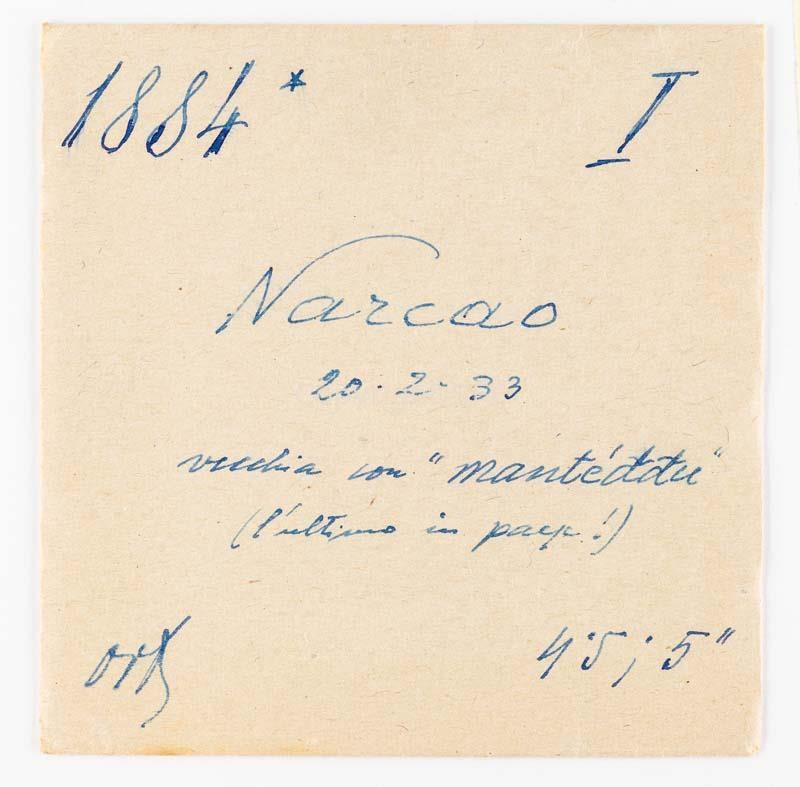 1884* I
Narcao
20.2.33
vecchia con "mantéđđu"
(l'ultimo in paese!)
ort
4'5; 5"